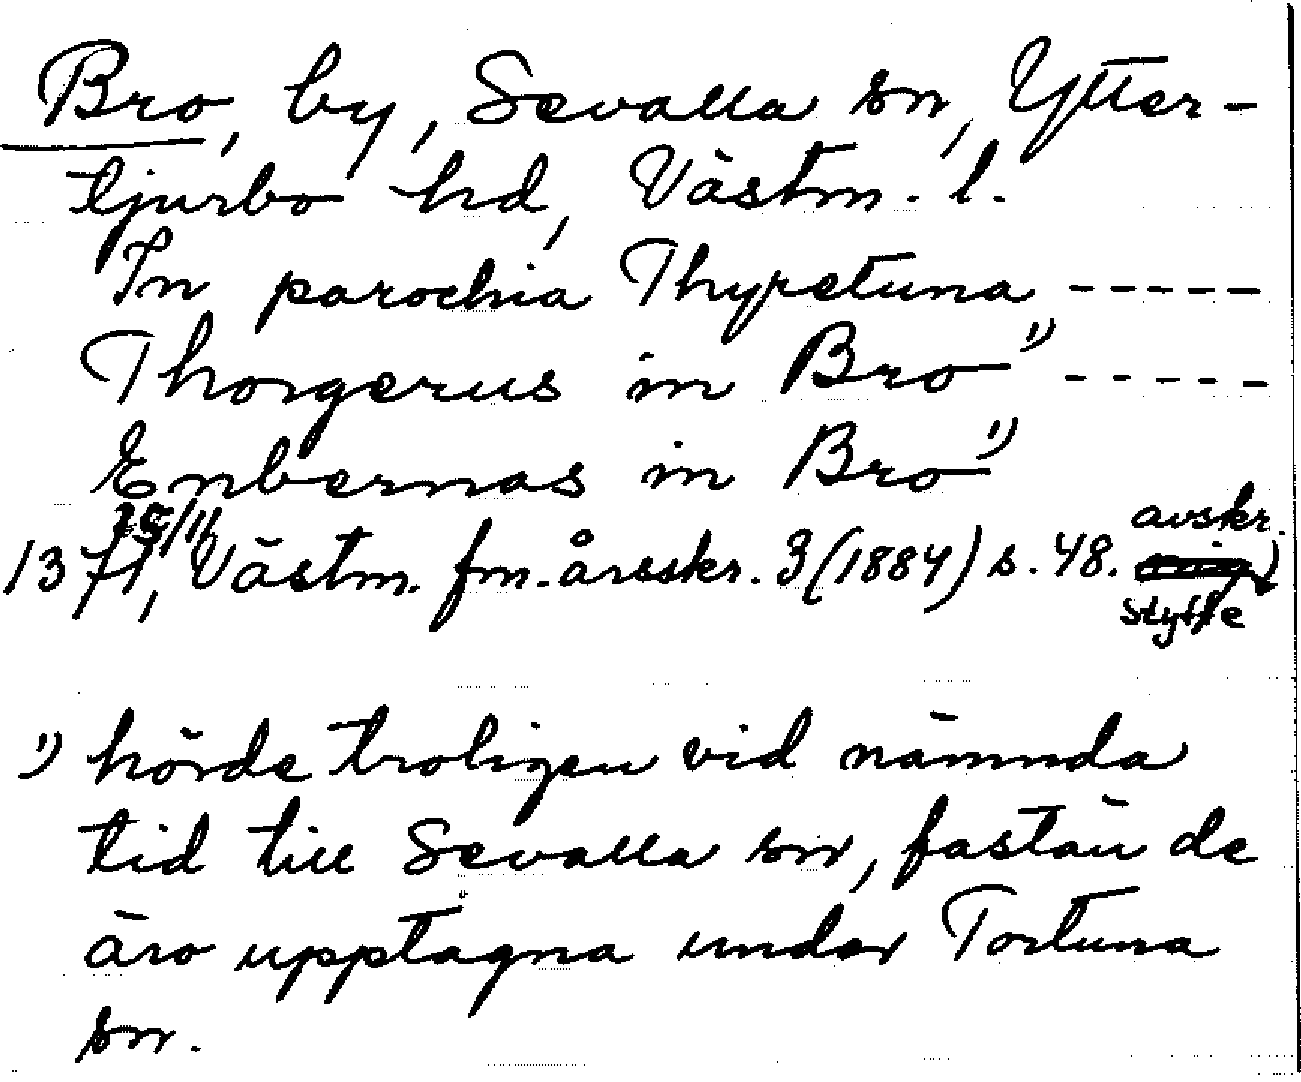 Bro, by, Sevalla sn, Ytter-
tjurbo hd, Västm. l.
In parochia Thyretuna -----
Thorgerus in Bro 1) -----
Enbernas in Bro 1)
1371, Västm. fm. årsskr. 3 (1884) s. 48. avskr.
Styffe
1) hörde troligen vid nämnda
tid till Sevalla sn, fastän de
äro upptagna under Tortuna
sn.